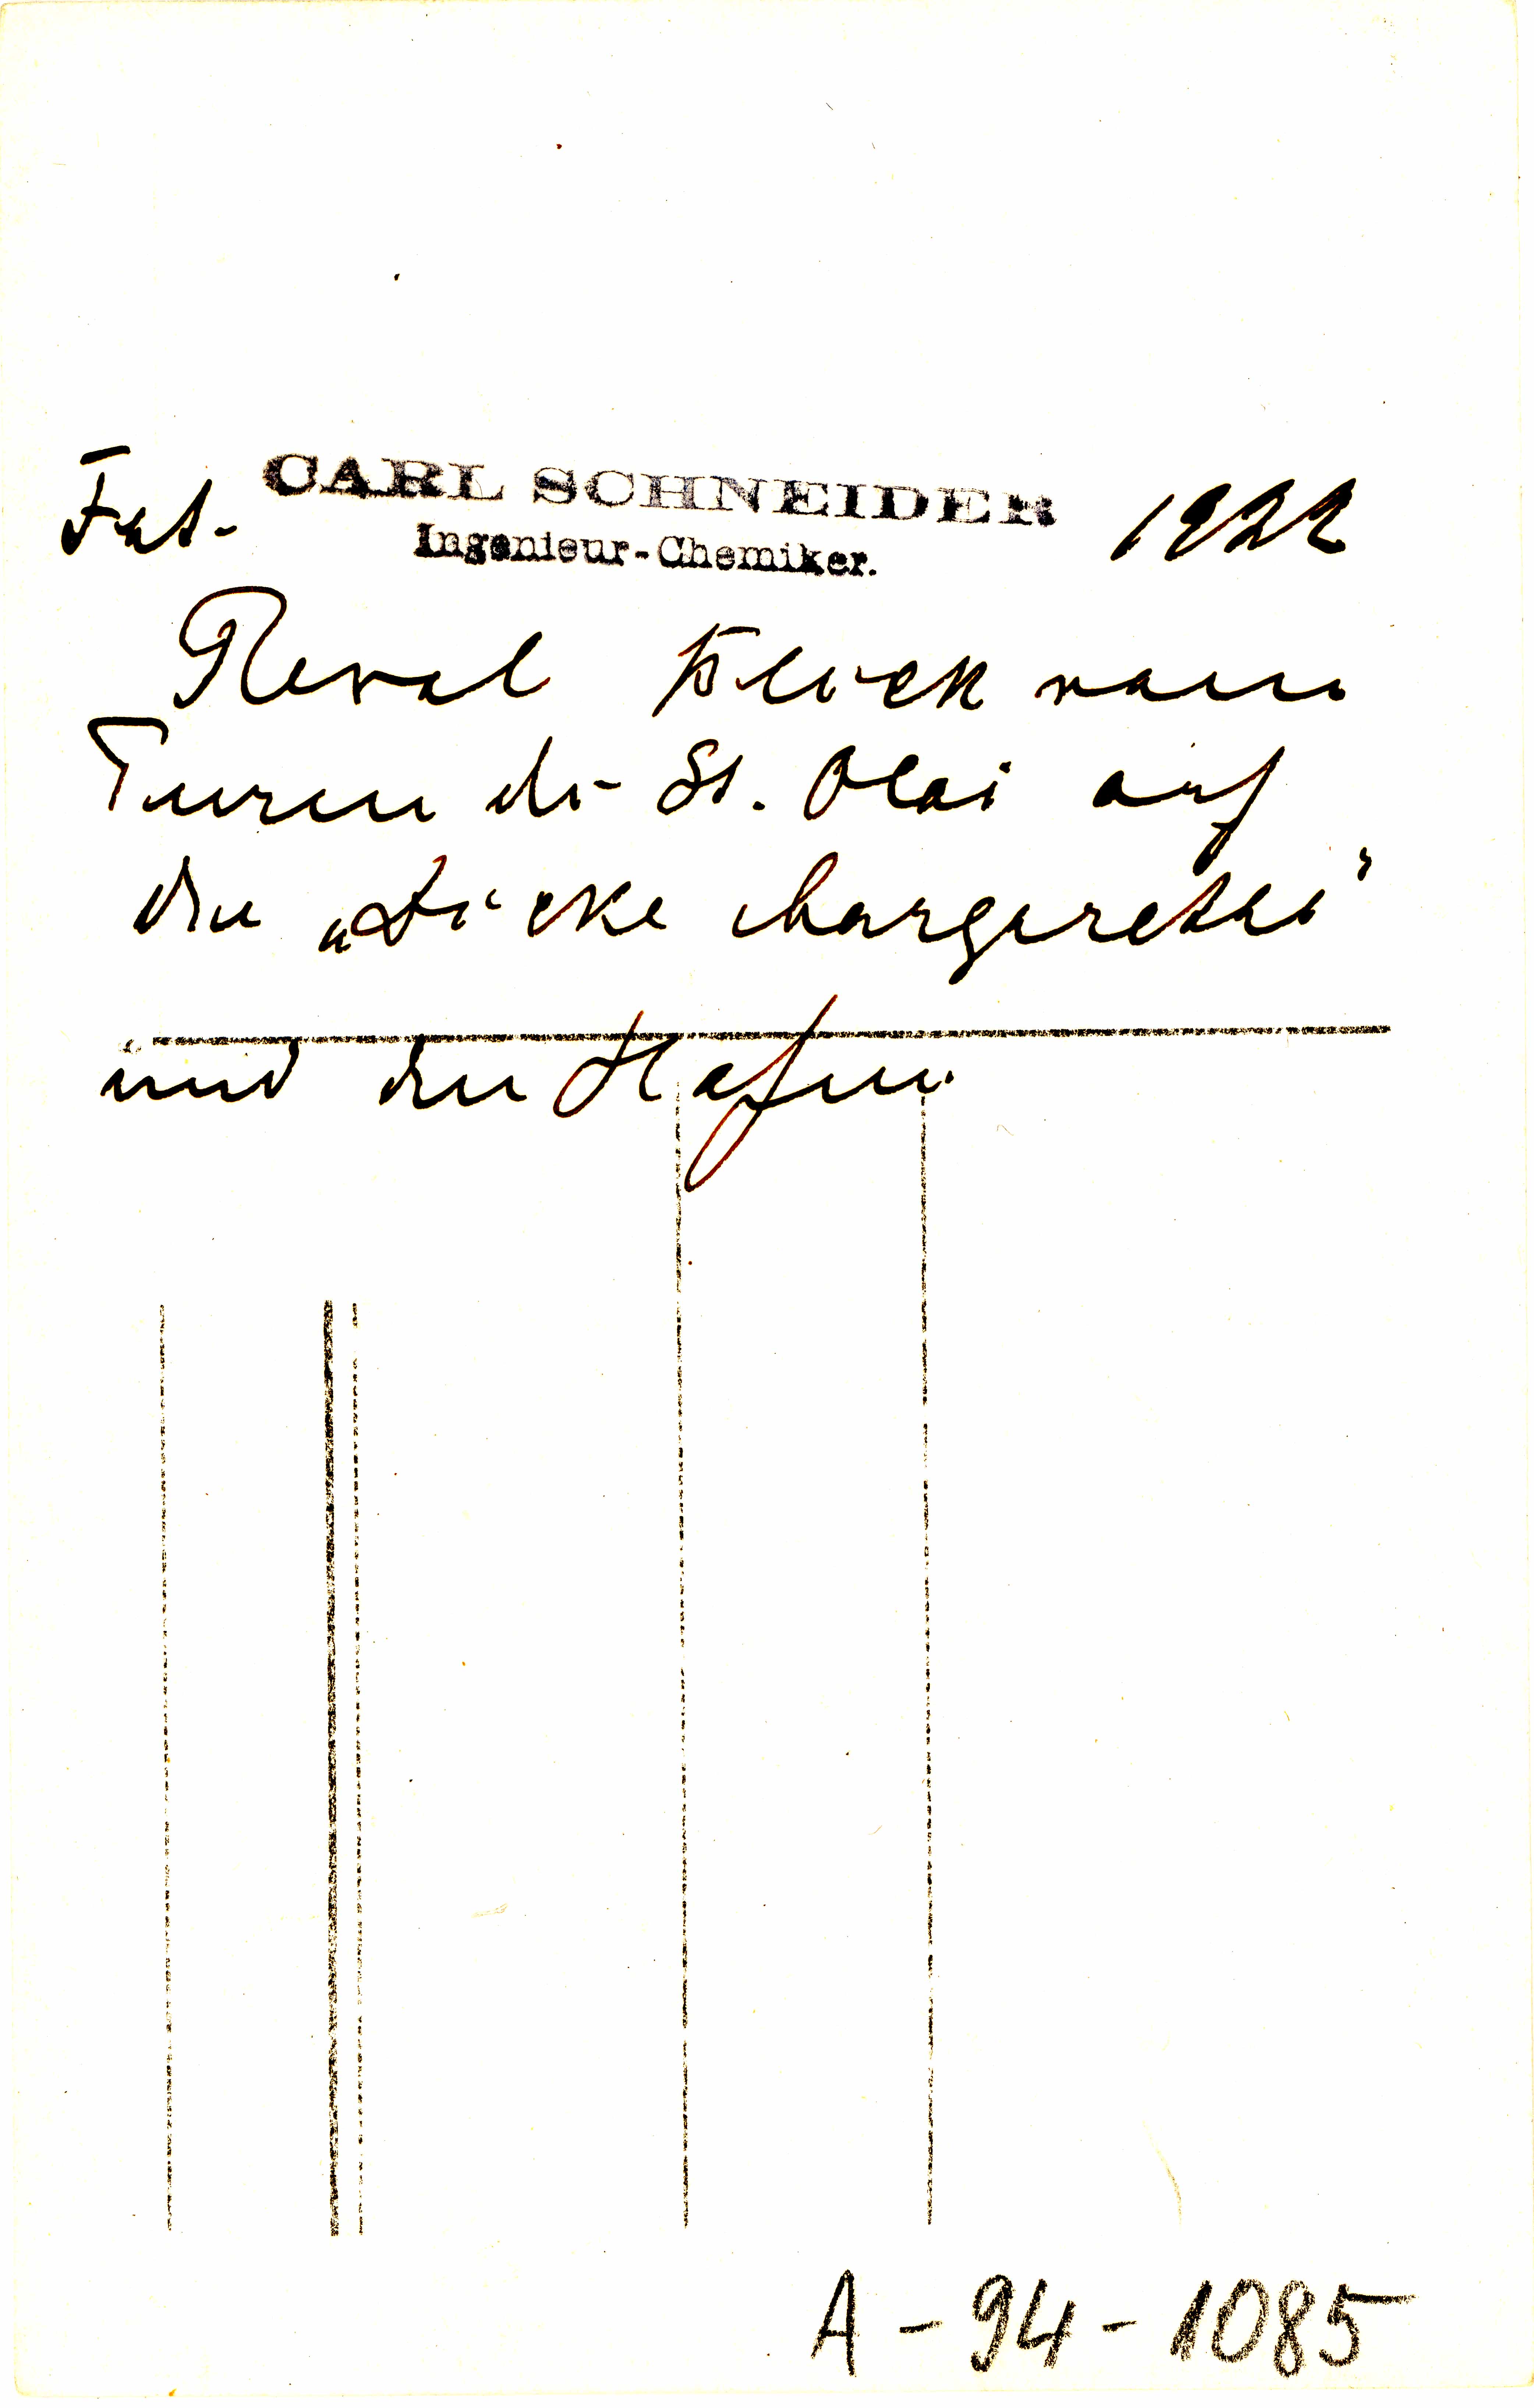 Fot. CARL SCHNEIDER 1922
Ingenieur-Chemiker.
Reval Blick vom
Turm der St. Olai auf
die „Dicke Margarethe“
und den Hafen.
A-94-1085